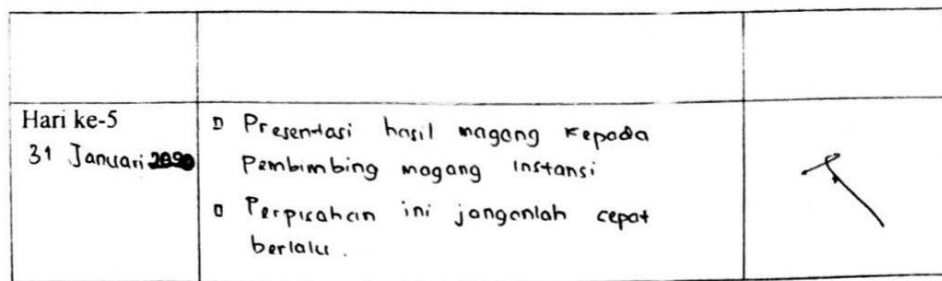 Hari ke-5
31 Januari
Presentasi hasil magang kepada
Pembimbing magang instansi
Perpisahan ini janganlah cepat
berlalu.